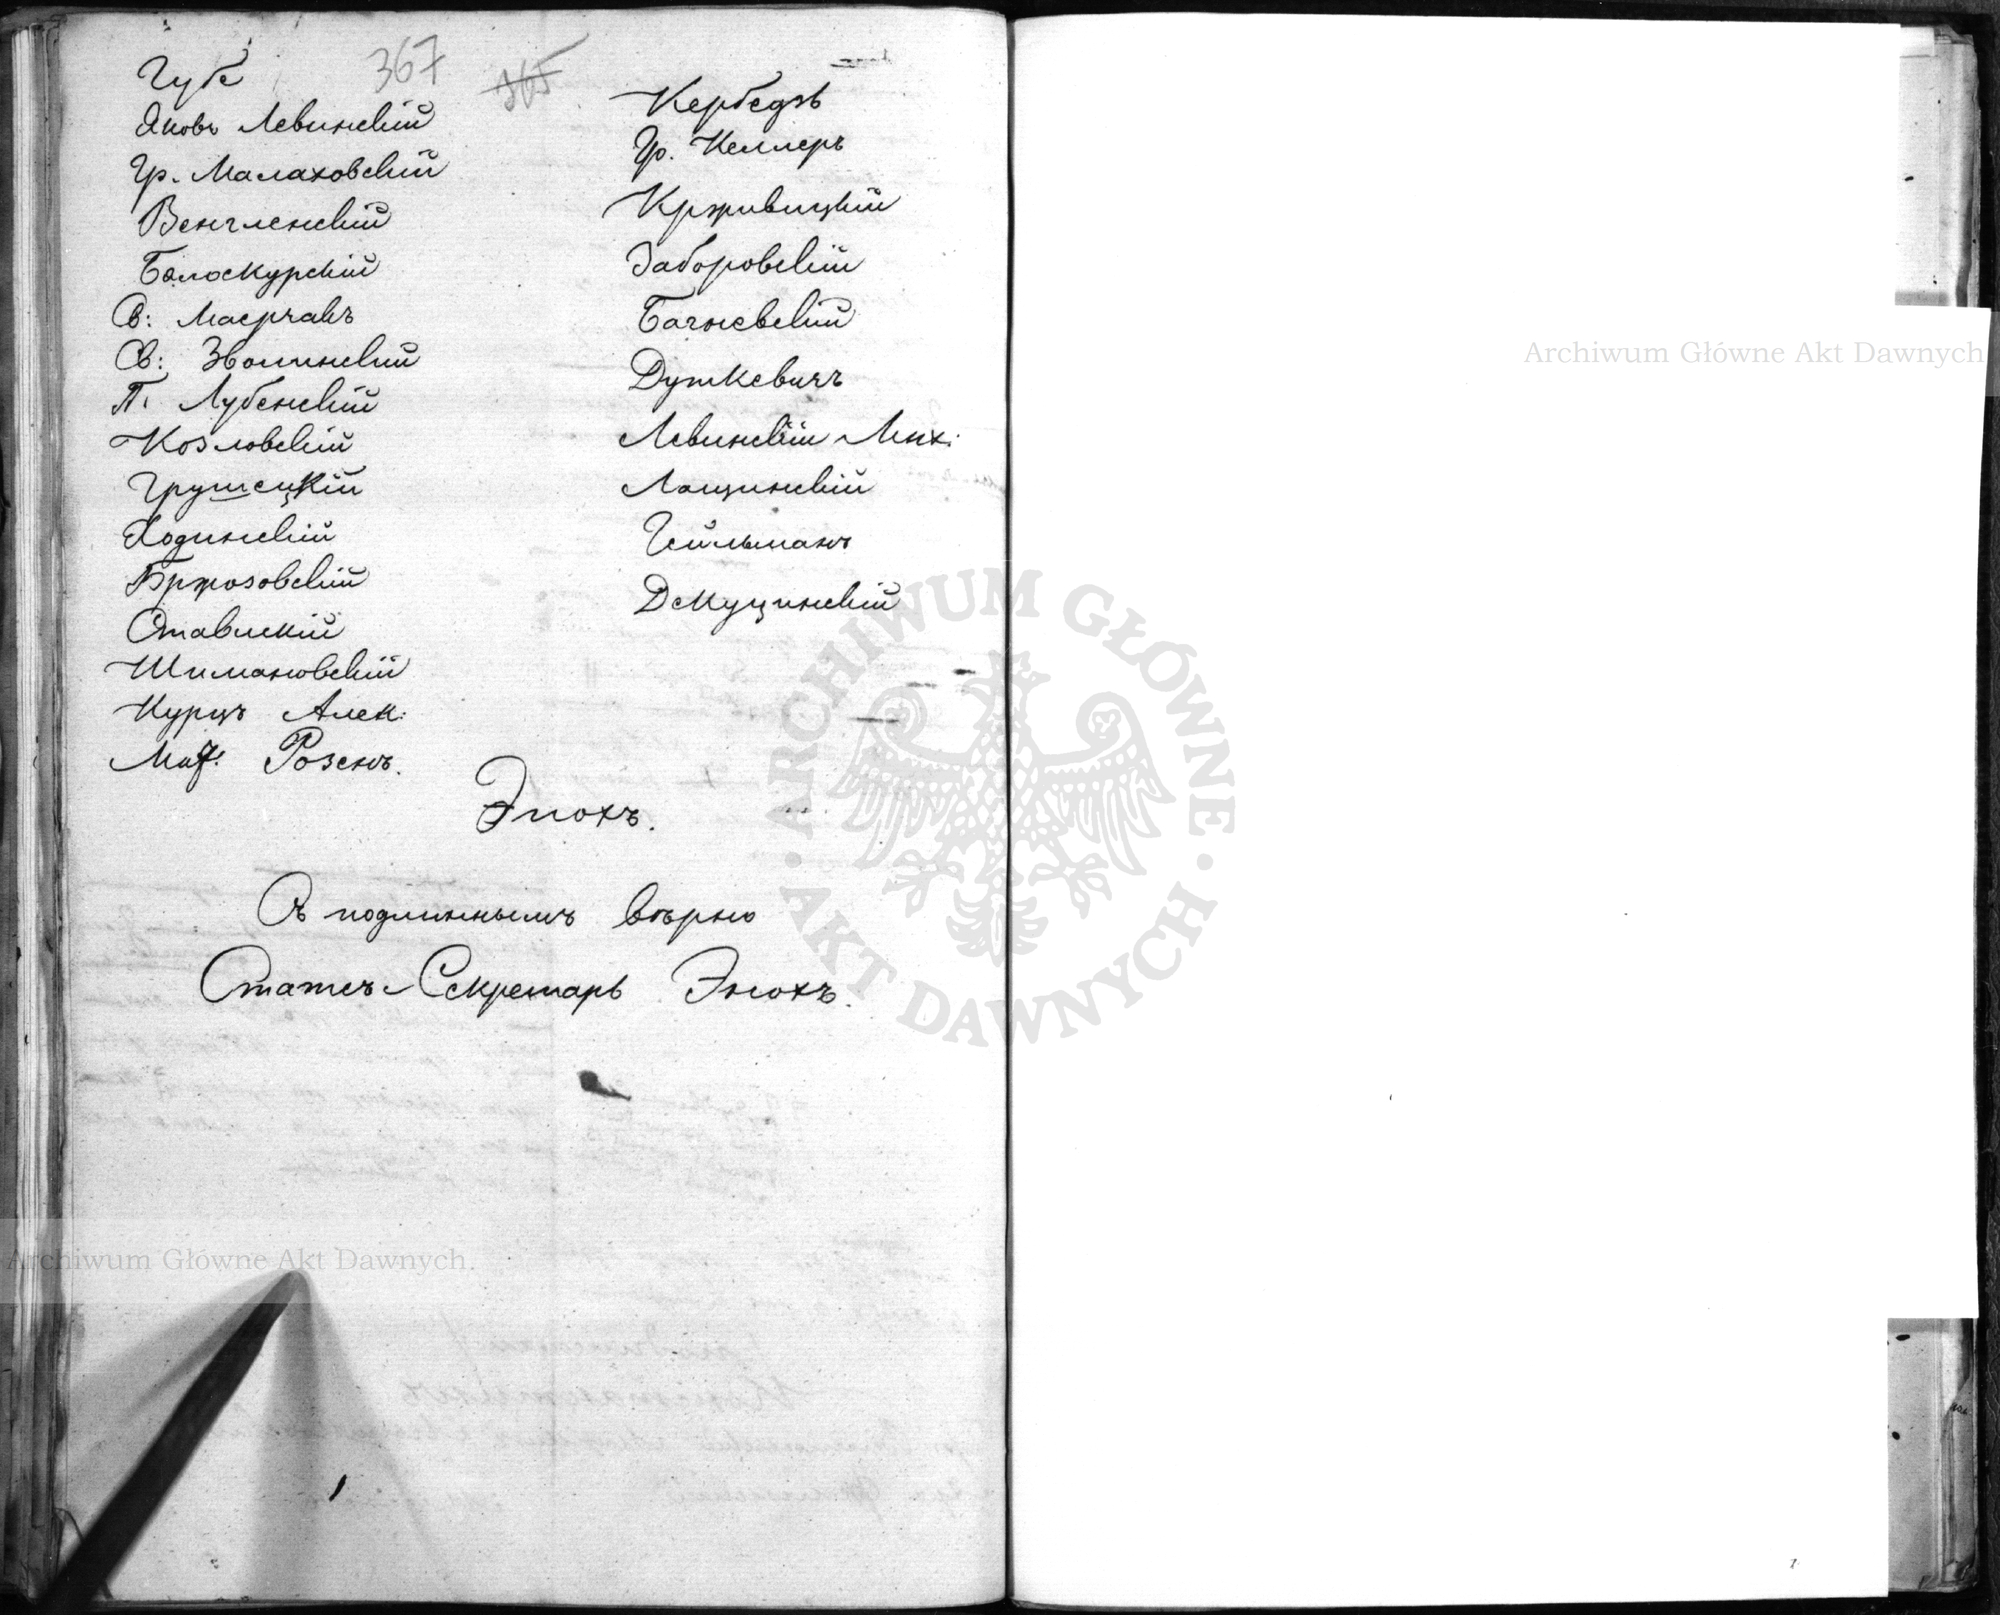 367
365
Губе
Яковъ Левинскій
Гр. Малаховскій
Венгленскій
Бялоскурскій
В: Масрчакъ
Св: Зволинскій
П. Лубенскій
Козловскій
Грушецкій
Ходинскій
Бржозовскій
Ставискій
Шимановскій
Курцъ Алек:
Мат. Розенъ.
Кербедзь
Гр. Келлеръ
Крживицкій
Заборовскій
Багневскій
Дуткевичъ
Левинскій Мих:
Лащинскій
Гейльманъ
Декуцинскій
Энохъ.
Съ подлиннымъ вѣрно
Статсъ-Секретарь Энохъ.
Archiwum Główne Akt Dawnych
Archiwum Główne Akt Dawnych.
ARCHIWUM GŁÓWNE AKT DAWNYCH